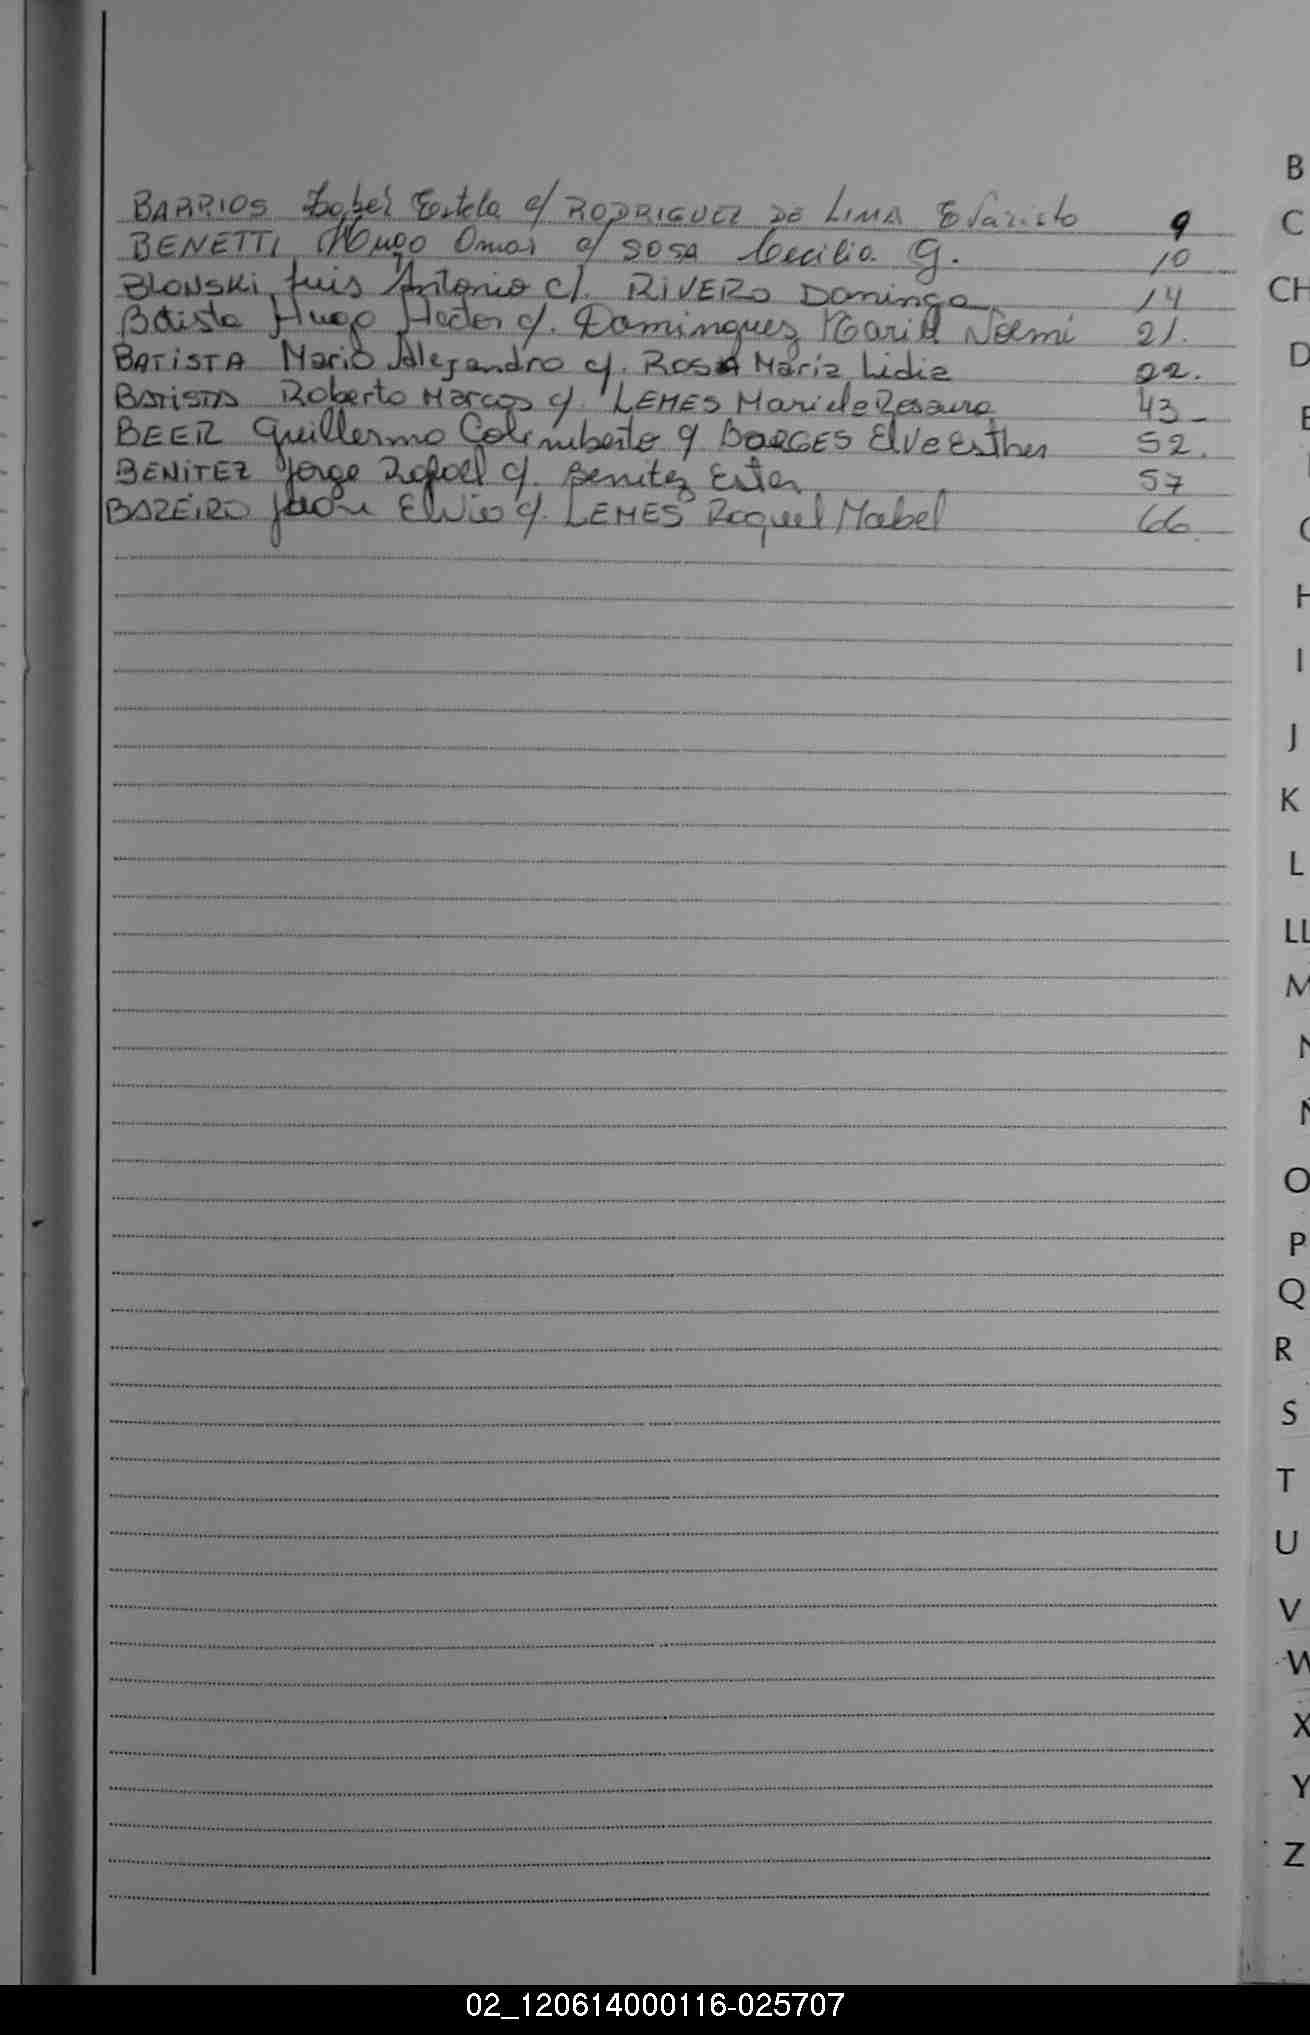 BARRIOS Isabel Estela c/ RODRIGUEZ DE LIMA Evaristo 9
BENETTI Hugo Omar c/ SOSA Cecilia G. 10
BLONSKI Luis Antonio c/. RIVERO Dominga 14
Batista Hugo Hector c/. Dominguez Maria Noemi 21.
BATISTA Mario Alejandro c/. ROSA Maria Lidia 22.
BATISTA Roberto Marcos c/. LEMES Mariela Rosaura 43-
BEER Guillermo c/ BORGES Elve Esther 52.
BENITEZ Jorge Rafael c/. Benitez Ester 57
BAZEIRO Elvio c/. LEMES Raquel Mabel 66
B
C
CH
D
E
G
H
I
J
K
L
LL
M
N
Ñ
O
P
Q
R
S
T
U
V
W
X
Y
Z
02_120614000116-025707